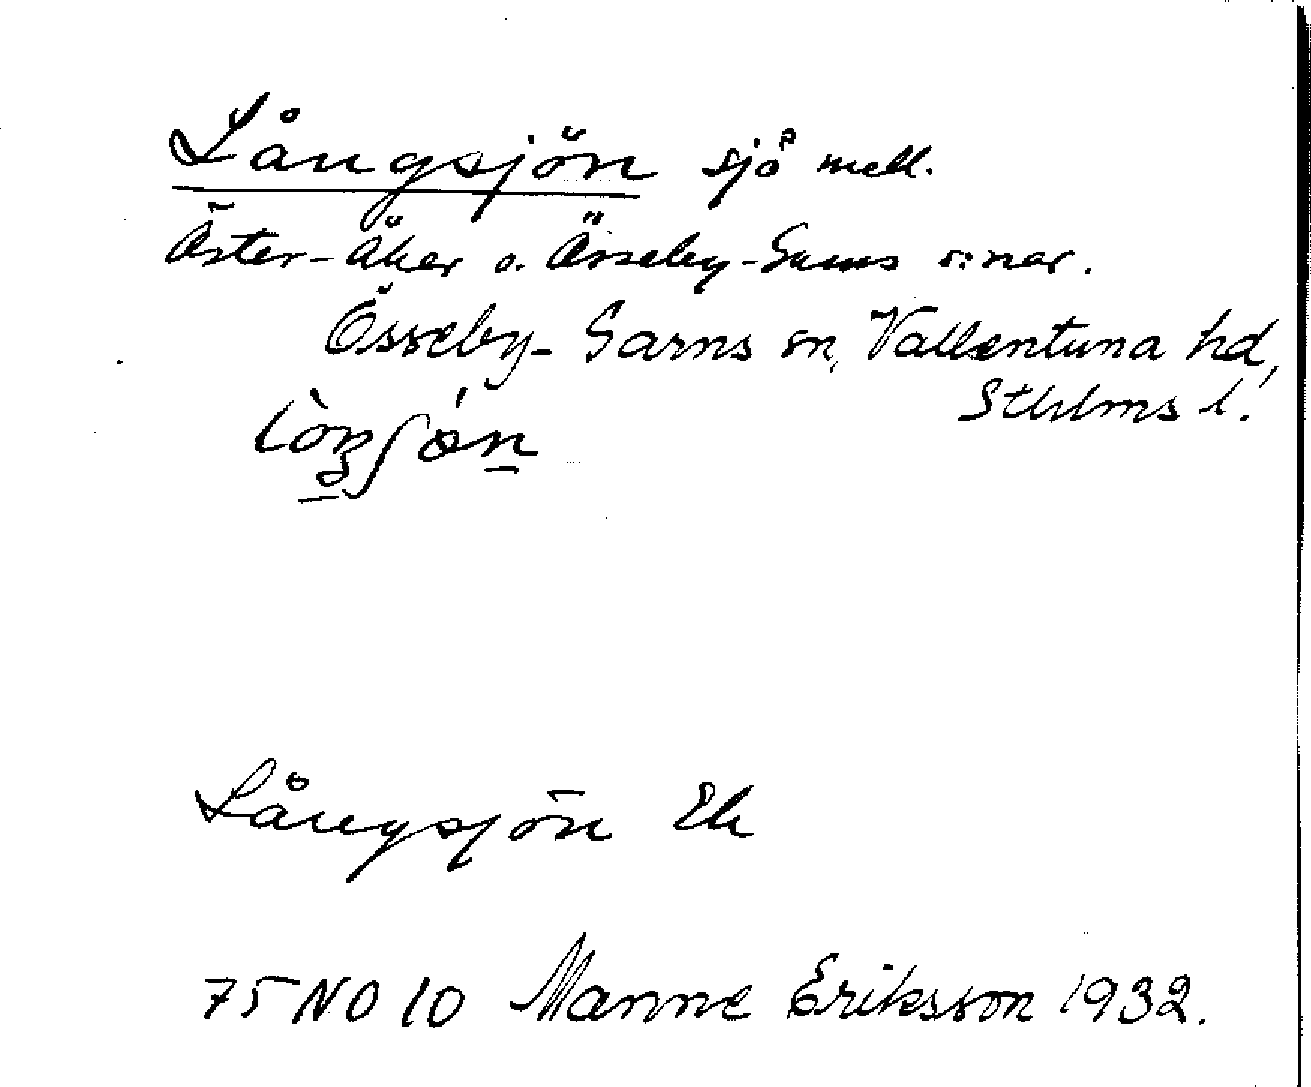 Långsjön sjö mell.
Öster-Åker o. Össeby-Garns snar.
Össeby-Garns sn, Vallentuna hd,
Sthlms l.
Långsjön Ek
75 NO 10 Manne Eriksson 1932.